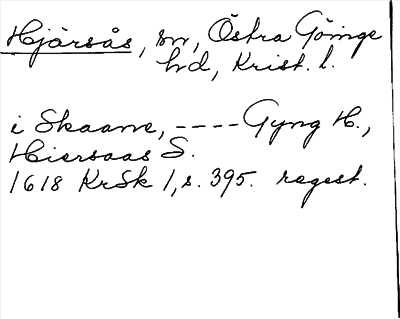 Hjärsås, sn, Östra Göinge
hd, Krist. l.
i Skaane, ---- Gyng H.,
Hiersaas S.
1618 KrSk 1, s. 395. regest.